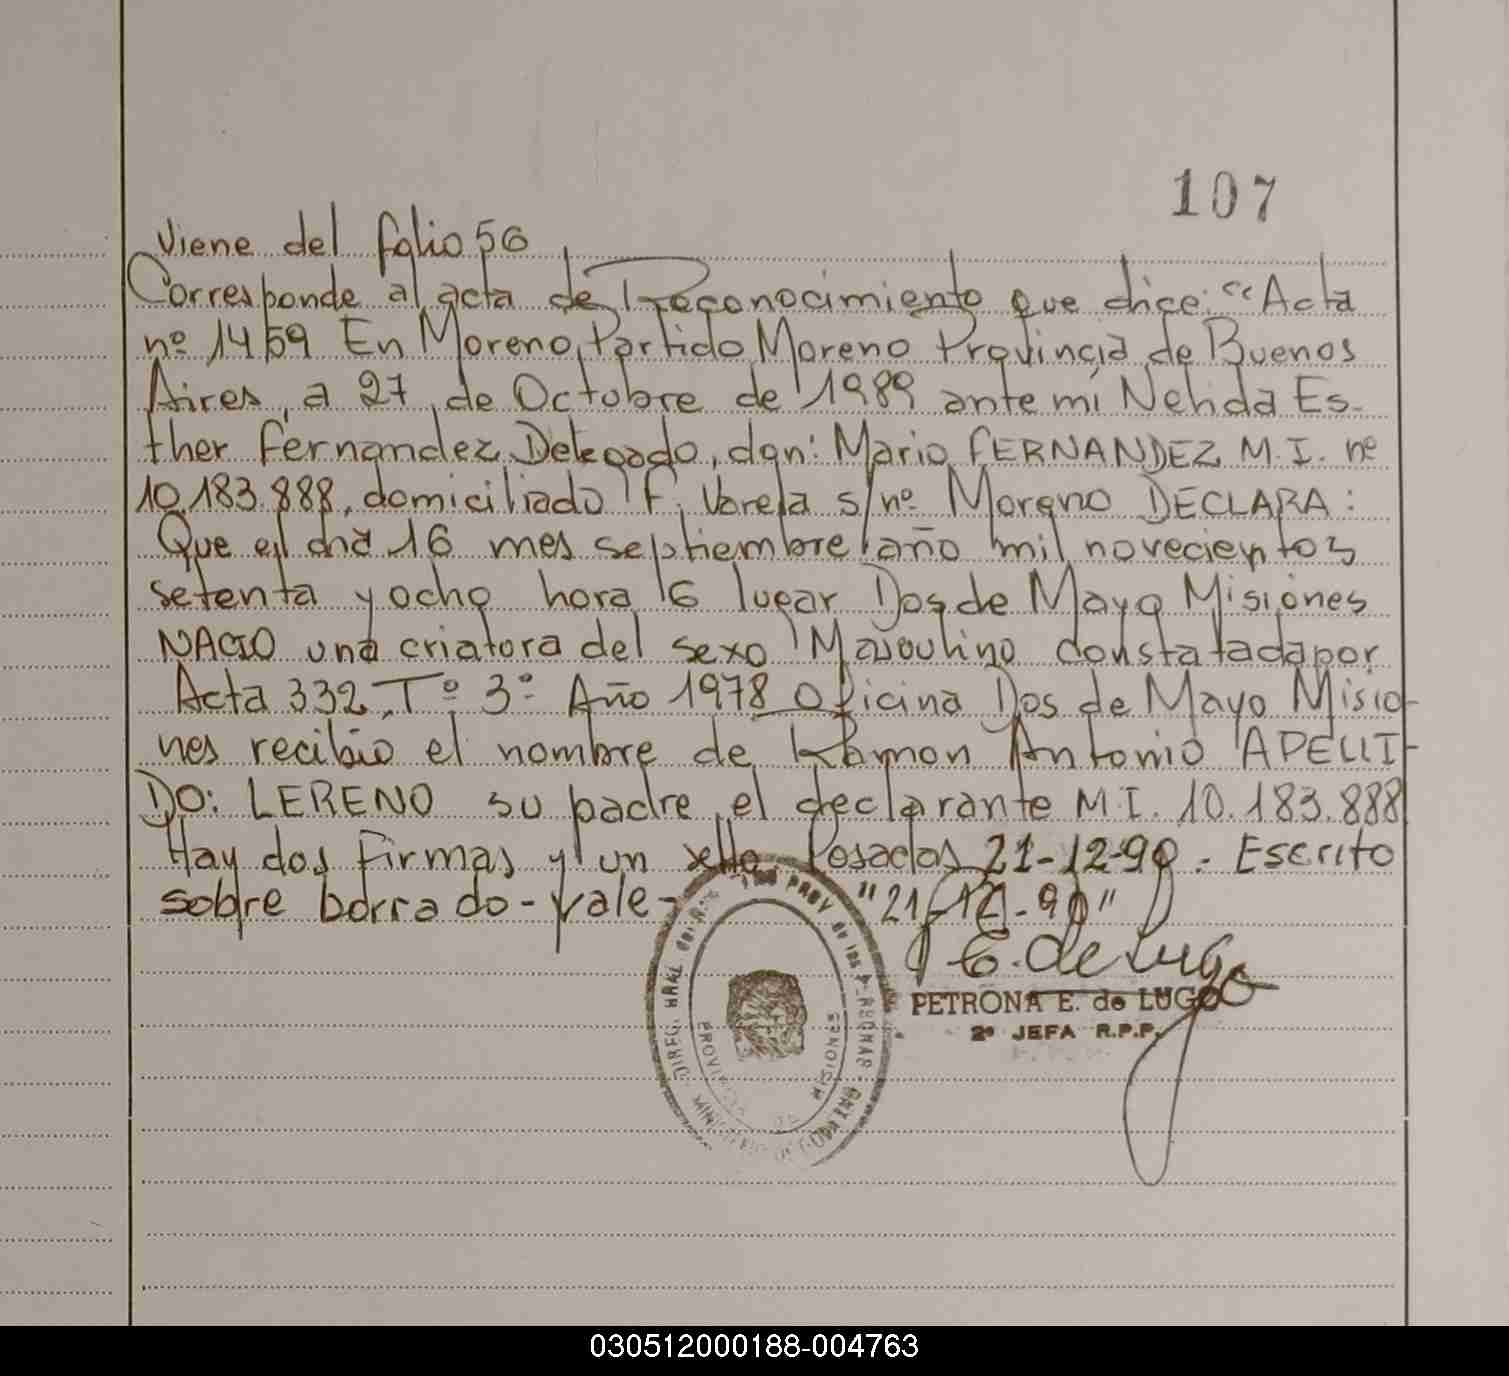 107
Viene del folio 56
Corresponde al acta de Reconocimiento que dice: "Acta
nº 1459 En Moreno, Partido Moreno Provincia de Buenos
Aires, a 27 de Octubre de 1989 ante mí Nelida Es-
ther Fernandez Delegado, don: Mario FERNANDEZ M.I. nº
10.183.888, domiciliado F. Varela s/nº Moreno DECLARA:
Que el día 16 mes septiembre año mil novecientos
setenta y ocho hora 6 lugar Dos de Mayo Misiones
NACIO una criatora del sexo Masculino constatada por
Acta 332 Tº 3º Año 1978 Oficina Dos de Mayo Misio-
nes recibio el nombre de Ramon Antonio APELLI-
DO: LERENO su padre el declarante M.I. 10.183.888
Hay dos firmas y un sello. Posadas 21-12-90. Escrito
sobre borrado - vale - "21-12-90"
E. de Lugo
PETRONA E. de LUGO
2ª JEFA R.P.P.
DIREC. GRAL. del PROV. de las PERSONAS
MINISTERIO DE GOBIERNO
PROVINCIA DE MISIONES
030512000188-004763